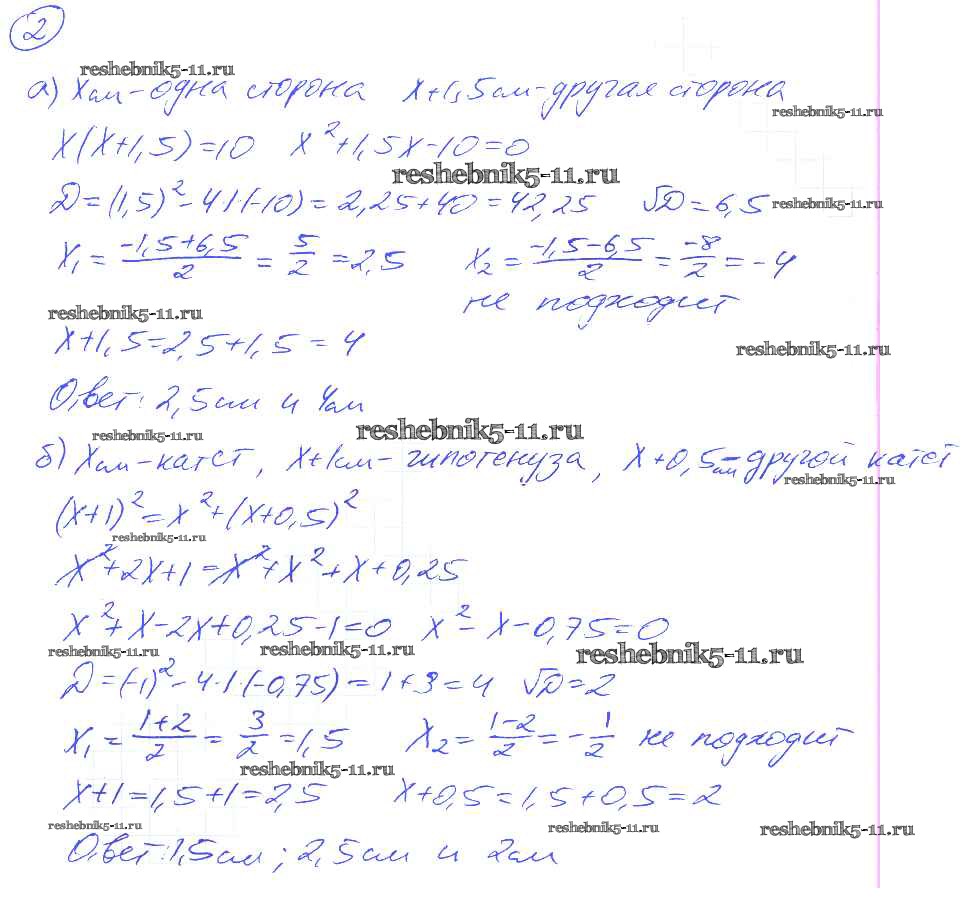 2
reshebnik5-11.ru
а) Xсм-одна сторона X+1,5см-другая сторона
reshebnik5-11.ru
X(X+1,5)=10 X²+1,5X-10=0
reshebnik5-11.ru
D=(1,5)²-4·1·(-10)=2,25+40=42,25 √D=6,5
reshebnik5-11.ru
X₁=(-1,5+6,5)/2=5/2=2,5 X₂=(-1,5-6,5)/2=-8/2=-4
не подходит
reshebnik5-11.ru
X+1,5=2,5+1,5=4
reshebnik5-11.ru
Ответ: 2,5см и 4см
reshebnik5-11.ru
reshebnik5-11.ru
б) Xсм-катет, X+1см-гипотенуза, X+0,5см-другой катет
reshebnik5-11.ru
(X+1)²=X²+(X+0,5)²
reshebnik5-11.ru
X²+2X+1=X²+X²+X+0,25
X²+X-2X+0,25-1=0 X²-X-0,75=0
reshebnik5-11.ru
reshebnik5-11.ru
reshebnik5-11.ru
D=(-1)²-4·1·(-0,75)=1+3=4 √D=2
X₁=(1+2)/2=3/2=1,5 X₂=(1-2)/2=-1/2 не подходит
reshebnik5-11.ru
X+1=1,5+1=2,5 X+0,5=1,5+0,5=2
reshebnik5-11.ru
reshebnik5-11.ru
reshebnik5-11.ru
Ответ: 1,5см; 2,5см и 2см